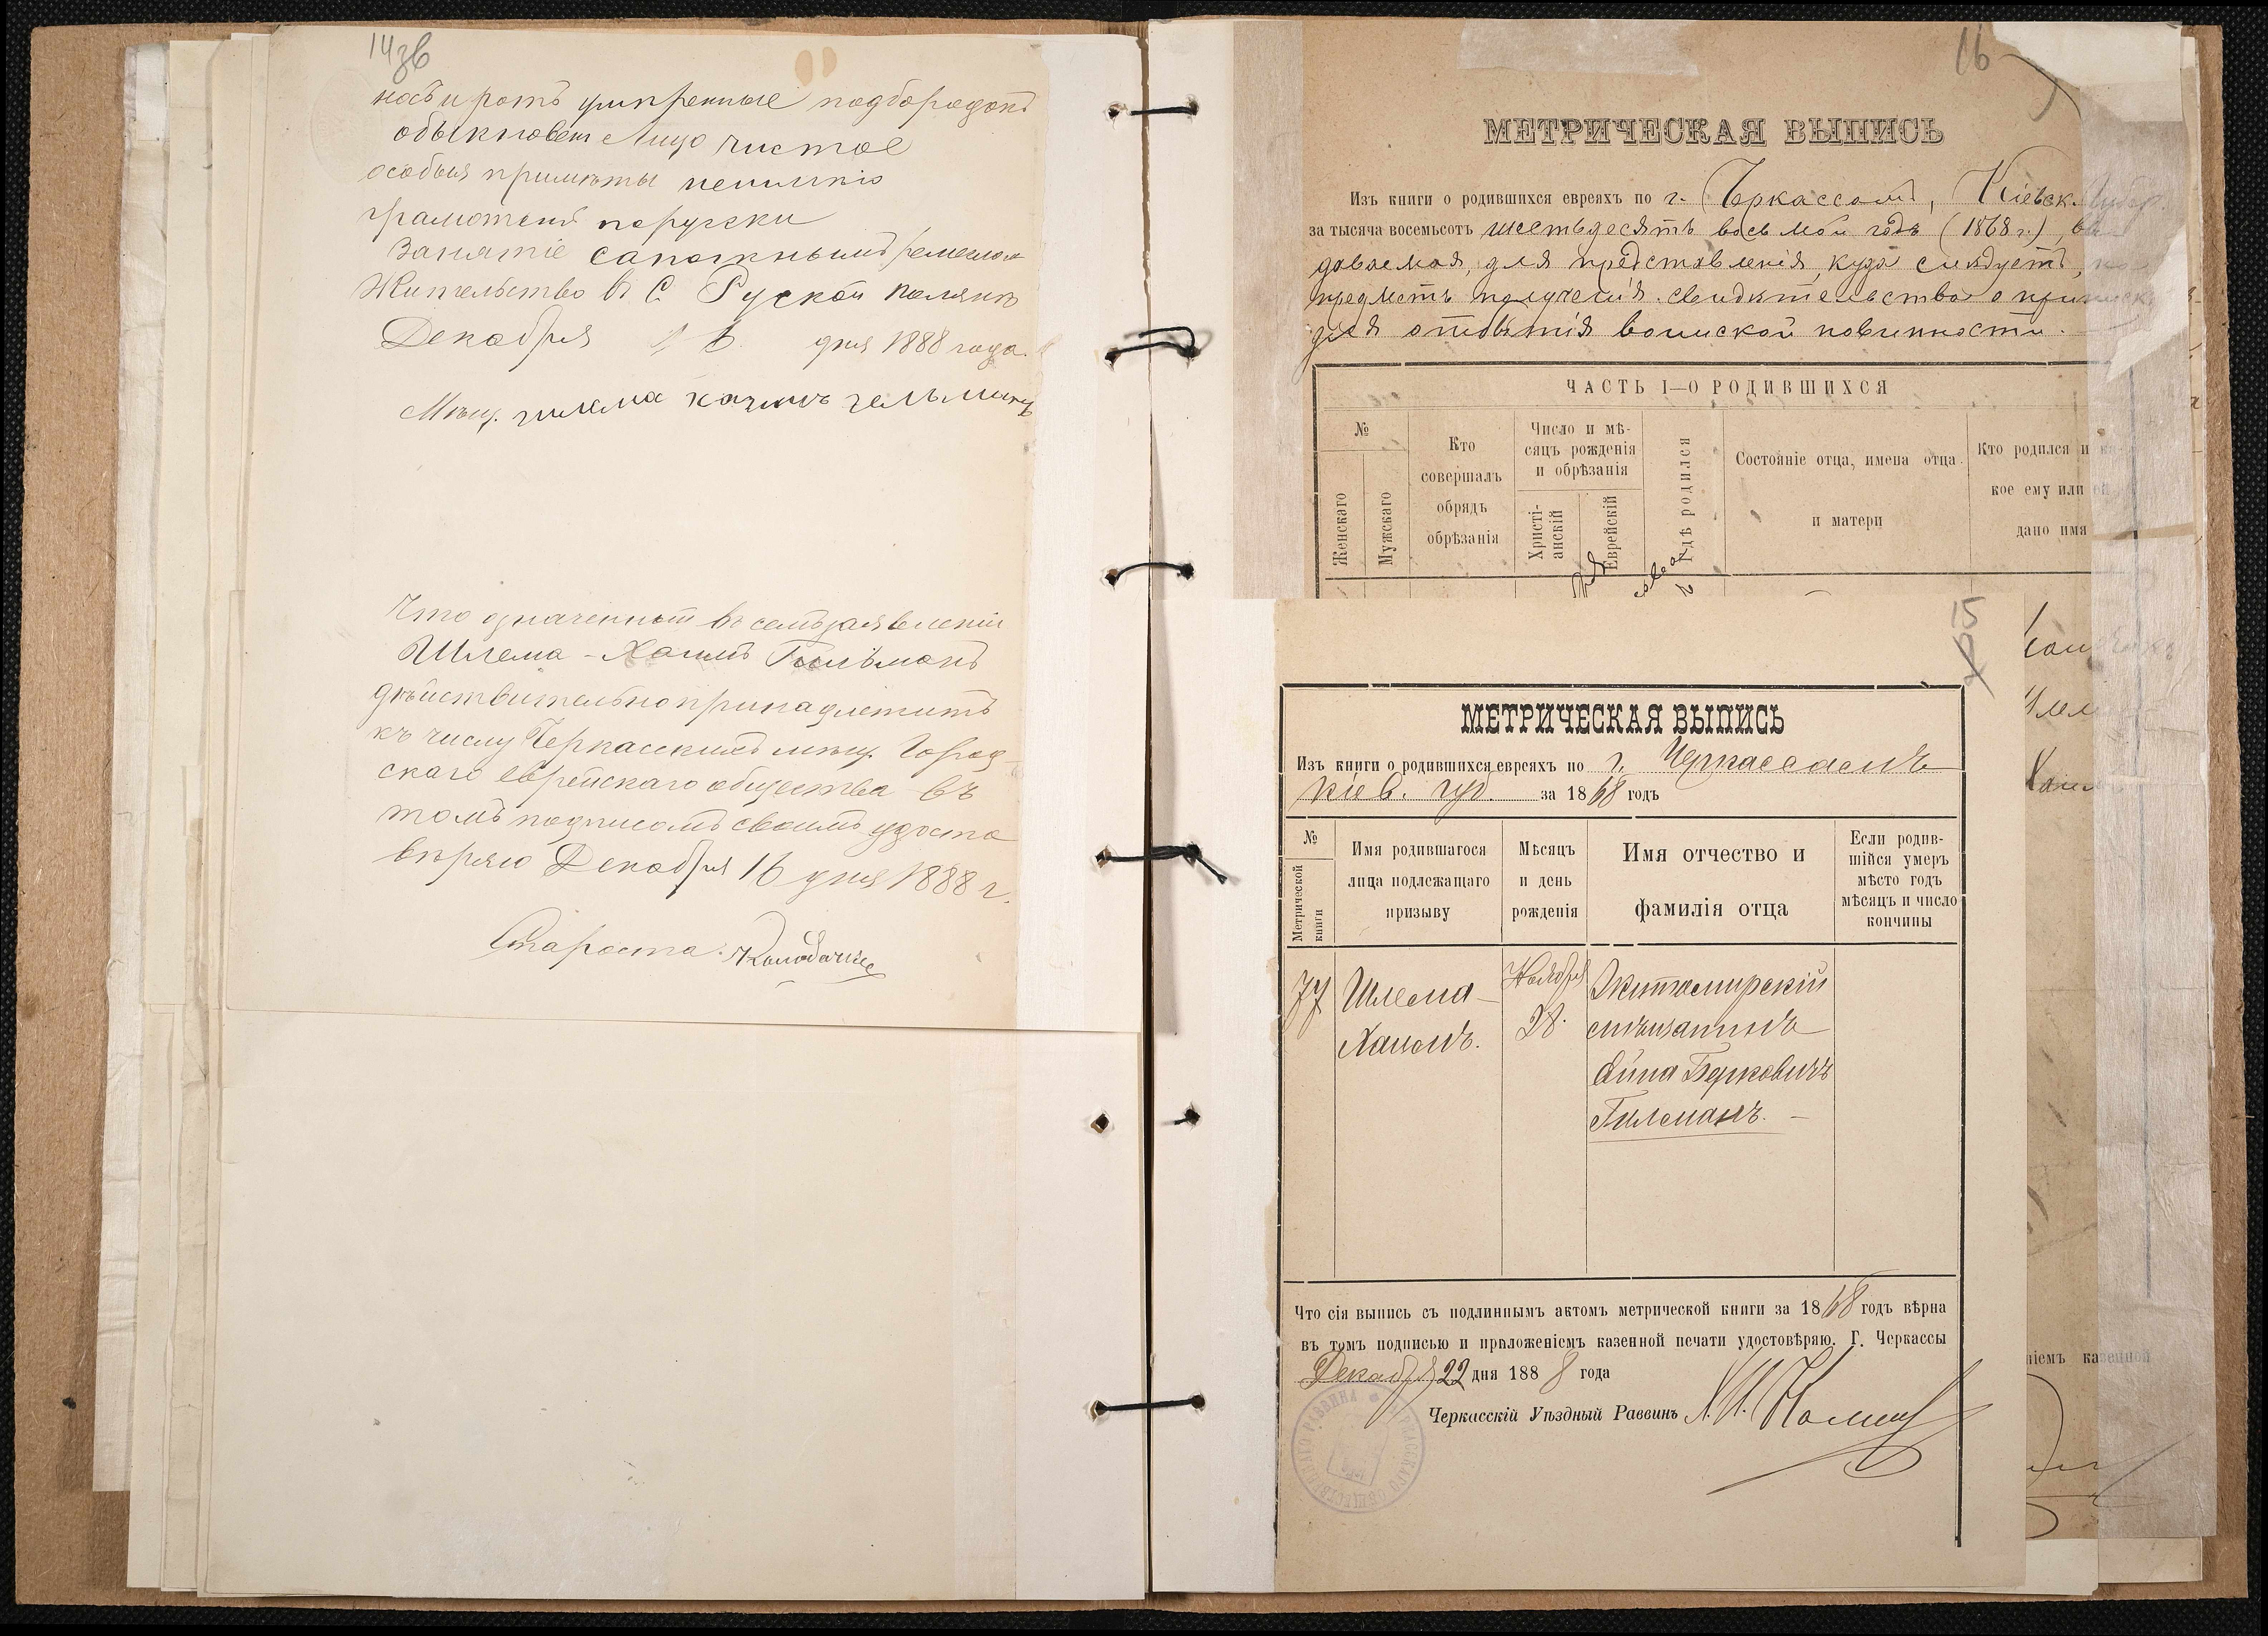 14зв
носъ и ротъ умѣренные подбородокъ
обыкновен Лицо чистое
особыя примѣты
грамотенъ порусски
Занятіе сапожнымъ ремеслом
Жительство въ С. Руской Полянѣ
Декабря 16 дня 1888 года.
Мѣщ.
Что означенный въ семъ заявленіи
Шлема-Хаимъ Гильманъ
дѣйствительно принадлежитъ
къ числу Черкасскимъ мѣщ. Город-
скаго еврейскаго общества въ
томъ подписомъ своимъ удосто
вѣряю Декабря 16 дня 1888 г.
Староста:
16
МЕТРИЧЕСКАЯ ВЫПИСЬ
Изъ книги о родившихся евреяхъ по г. Черкассамъ, Кіевск. Губер
за тысяча восемьсотъ шестьдесятъ восьмой годъ (1868 г.), вы
даваемая, для представленія, куда слѣдуетъ, на
предметъ полученія свидѣтельства о приписк
для отбытія воинской повинности.
ЧАСТЬ I—О РОДИВШИХСЯ
№
Женскаго
Мужскаго
Кто
совершалъ
обрядъ
обрѣзанія
Число и мѣ-
сяцъ рожденія
и обрѣзанія
Христі-
анскій
Еврейскій
Гдѣ родился
Состояніе отца, имена отца
и матери
Кто родился и ка
кое ему или ей
дано имя
15
МЕТРИЧЕСКАЯ ВЫПИСЬ
Изъ книги о родившихся евреяхъ по г. Черкассамъ
Кіев. губ. за 1868 годъ
№
Метрической
книги
Имя родившагося
лица подлежащаго
призыву
Мѣсяцъ
и день
рожденія
Имя отчество и
фамилія отца
Если родив-
шійся умеръ
мѣсто годъ
мѣсяцъ и число
кончины
77
Шлема-
Хаимъ.
Ноября
28.
Житомирскій
мѣщанинъ
Берковичъ
Гилманъ.
Что сія выпись съ подлиннымъ актомъ метрической книги за 1868 годъ вѣрна
въ томъ подписью и приложеніемъ казенной печати удостовѣряю. Г. Черкассы
Декабря 22 дня 1888 года
Черкасскій Уѣздный Раввинъ
ніемъ казенной